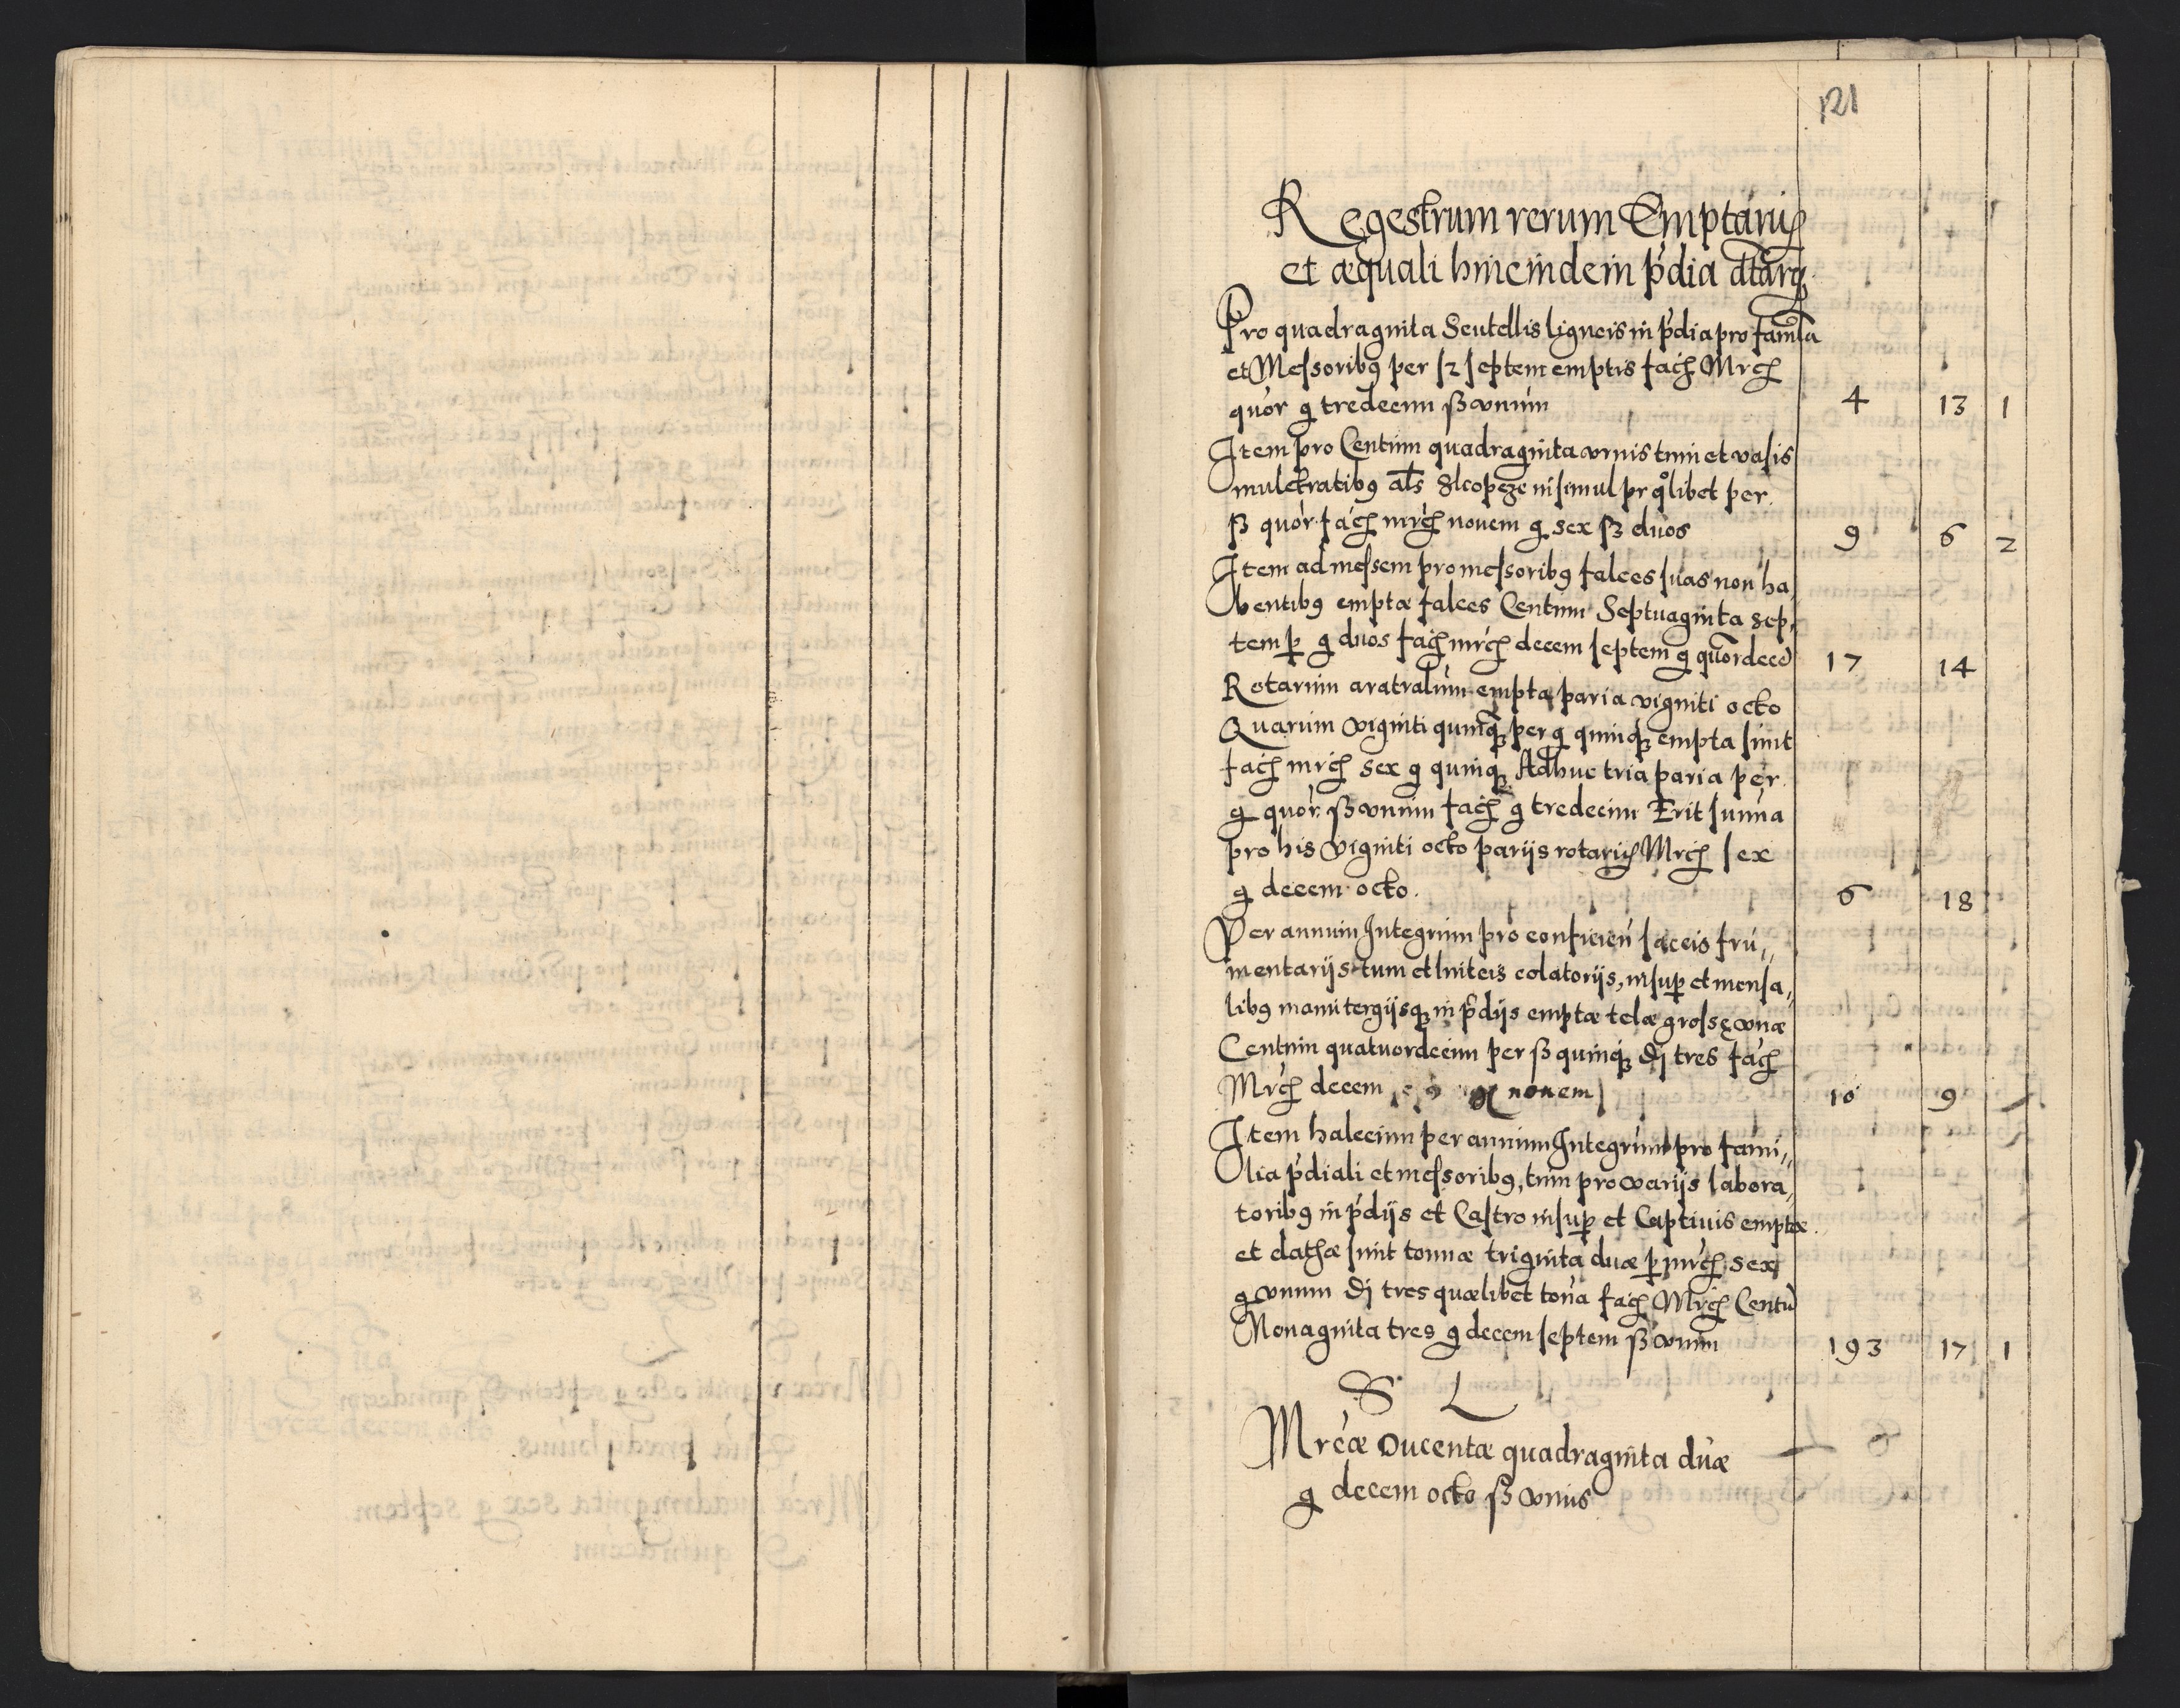 121
Regestrum rerum Emptarũ
et æquali hincinde in p̃dia dtarũ
Pro quadraginta Scutellis ligneis in p̃dia pro familia
et Messoribus per sz septem emptis facit Mrcas
quor g tredecim sz unum 4 13 1
Item pro Centum quadraginta urnis tum et vasis
mulctratibus als simul pr qolibet per
sz quor facit mrcas novem g sex sz duos 9 6 2
Item ad messem pro messoribus falces suas non ha,
bentibus emptæ falces Centum Septuaginta sep,
tem p g duos facit mrcas decem septem g quordece 17 14
Rotarum aratralium empta paria viginti octo
Quarum viginti quinque per g quinque empta sunt
facit mrcas sex g quinque Adhuc tria paria per
g quor sz unum facit g tredecim Erit summa
pro his viginti octo parijs rotarum Mrcas sex
g decem octo. 6 18
Per annum Integrum pro conficien saccis fru,,
mentarijs tum et linteis colatorijs, insup et mensa,,
libus manutergijsque in p̃dijs emptæ telæ grossę ulnæ
Centum quatuordecim per sz quinque dj tres facit
Mrcas decem g novem 10 9
Item halecum per annum Integrum pro fami,,
lia p̃diali et messoribus, tum pro varijs labora,,
toribus in p̃dijs et Castro insup et Captivis emptæ
et datæ sunt tonnæ triginta duæ p mrcas sex
g unum dj tres quælibet tonna facit Mrcas Centũ
Nonaginta tres g decem septem sz unum 193 17 1
S L
Mrcæ Ducentæ quadraginta duæ
g decem octo sz unus